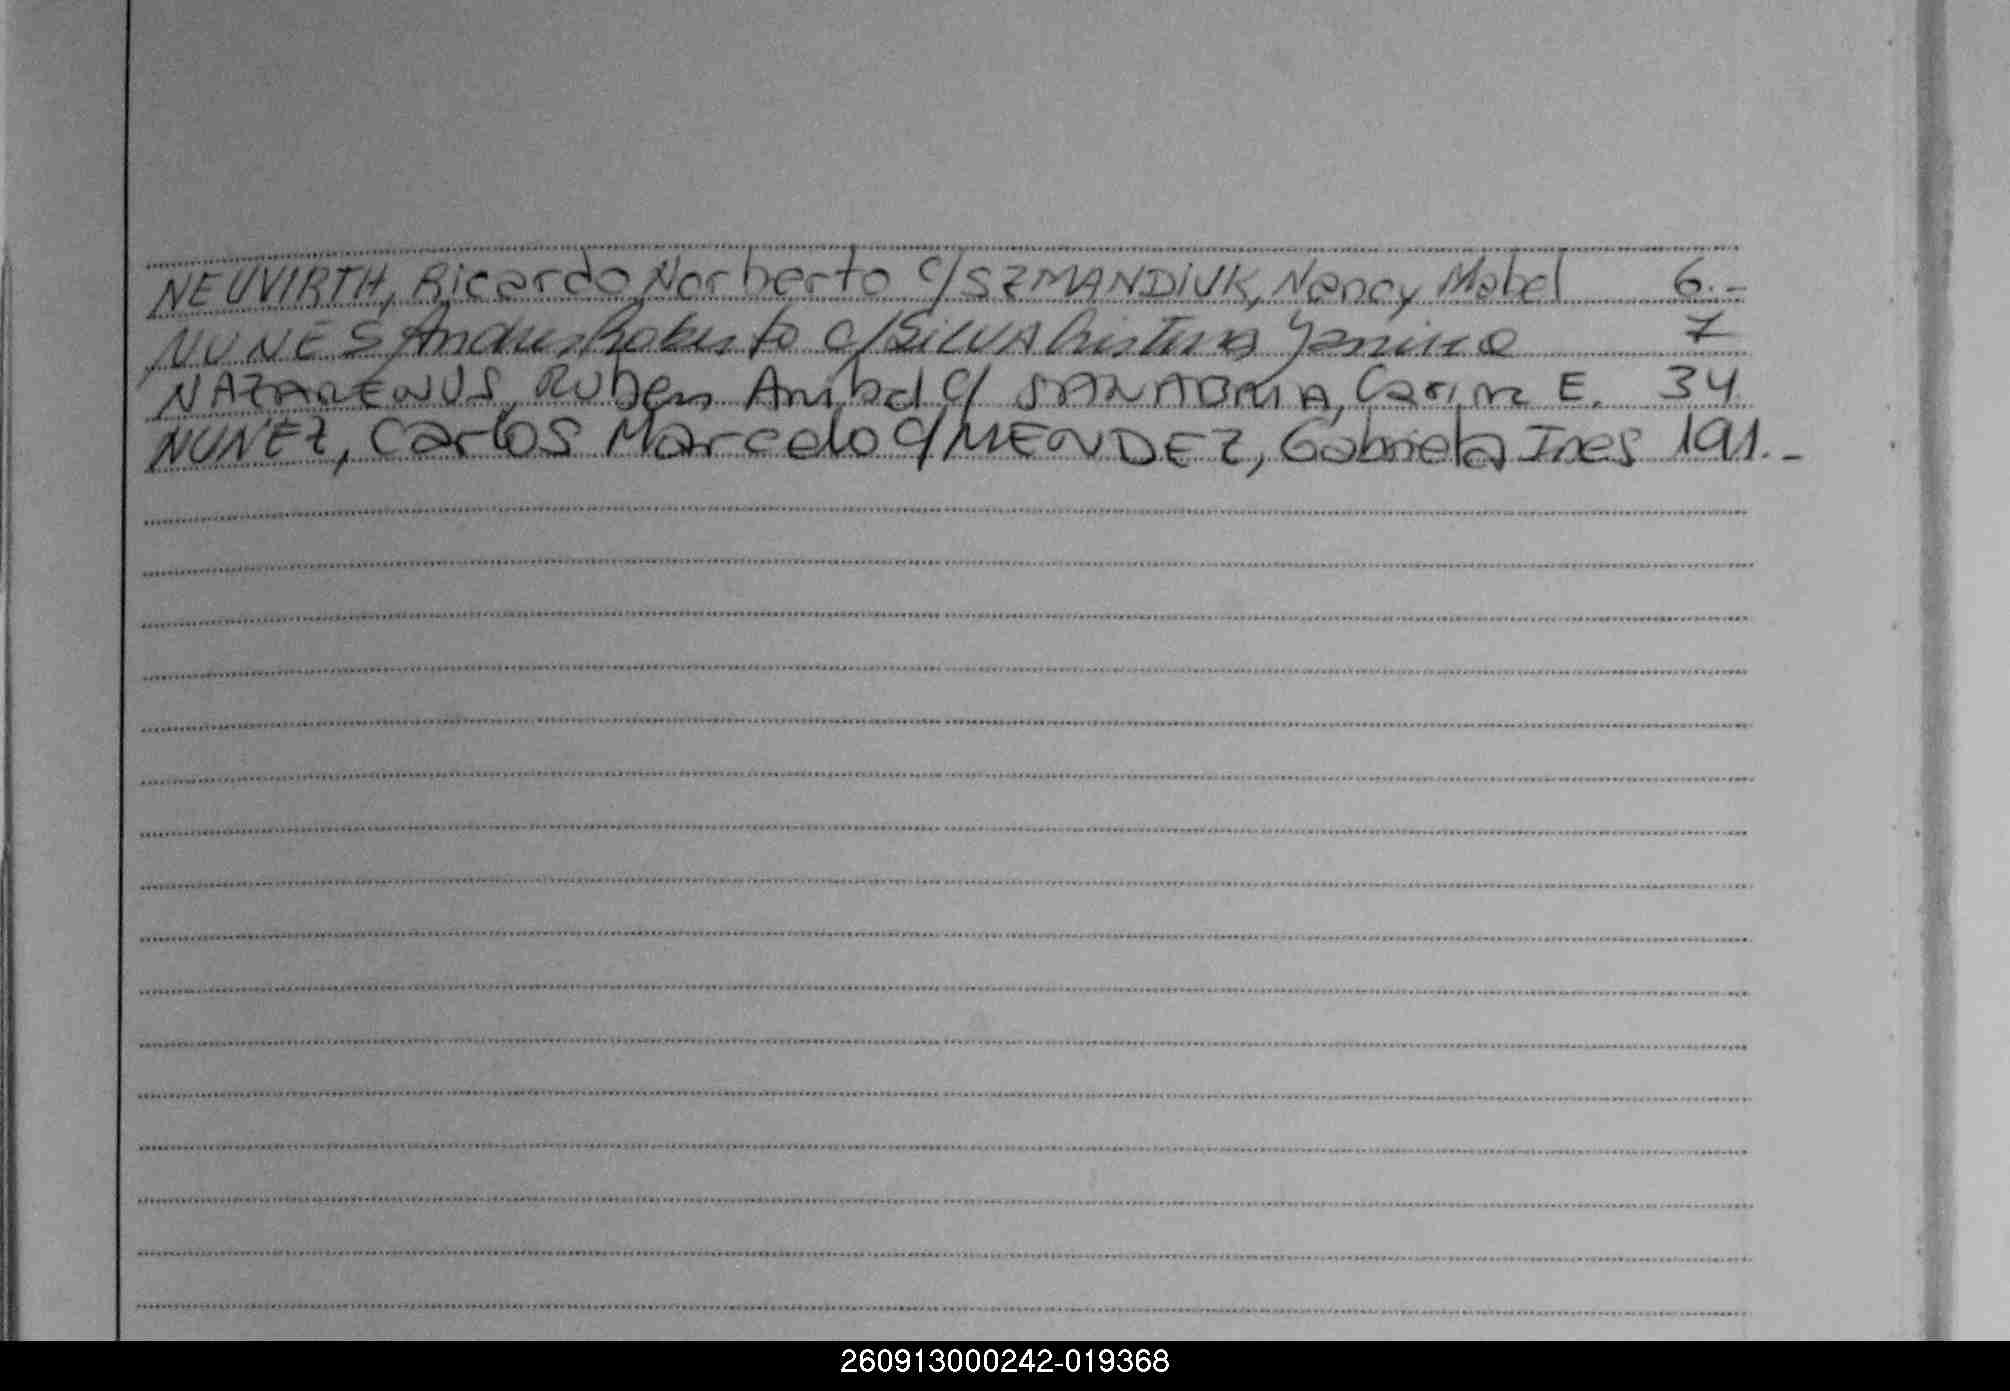 NEUVIRTH, Ricardo Norberto c/ SZMANDIUK, Nancy Mabel 6.-
NUNES Andres Roberto c/ SILVA Cristina Yanina 7
NAZARENUS, Ruben Anibal c/ SANABRIA, Carina E. 34
NUNEZ, Carlos Marcelo c/ MENDEZ, Gabriela Ines 191.-
260913000242-019368